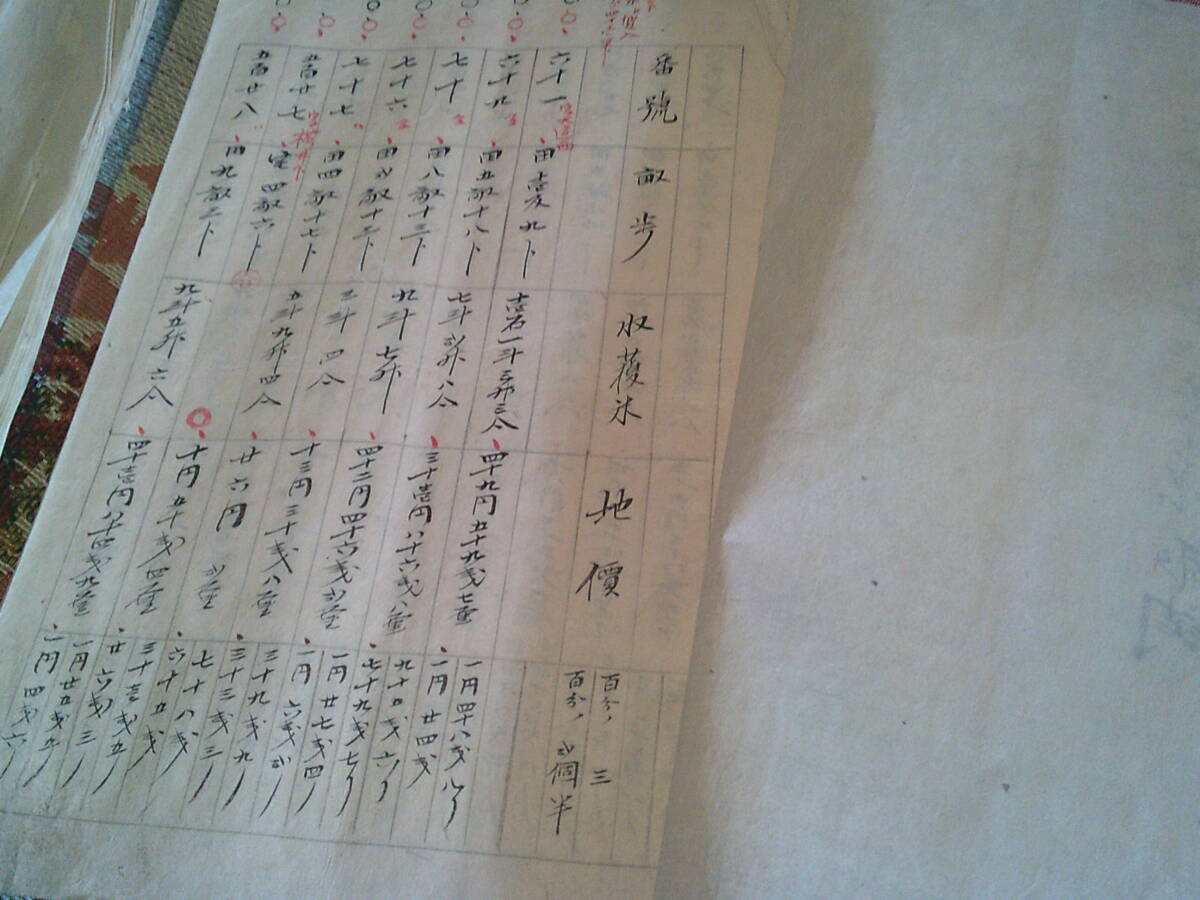 番號 畝歩 収穫米 地價 百分ノ三
百分ノ弐個半
六十一 田壱反九ト 壱石一斗三升三合 四十九円五十九戋七厘 一円四十八戋八リ
一円廿四戋
六十九 仝 田五畝十八ト 七斗弐升八合 三十壱円八十六戋八厘 九十五戋六リ
七十九戋七リ
七十 仝 田八畝十三ト 九斗七升 四十二円四十六戋弐厘 一円廿七戋四リ
一円六戋弐リ
七十六 仝 田弐畝十二ト 三斗四合 十三円三十戋八厘 三十九戋九リ
三十三戋三リ
七十七 〃 田四畝十七ト 五斗九升四合 廿六円弐厘 七十八戋
六十五戋
五百廿七 宅四畝六ト 十円五十戋四厘 三十壱戋五リ
廿六戋三リ
五百廿八 〃 田九畝二ト 九斗五升六合 四十壱円八十四戋九厘 一円廿五戋五リ
一円四戋六リ